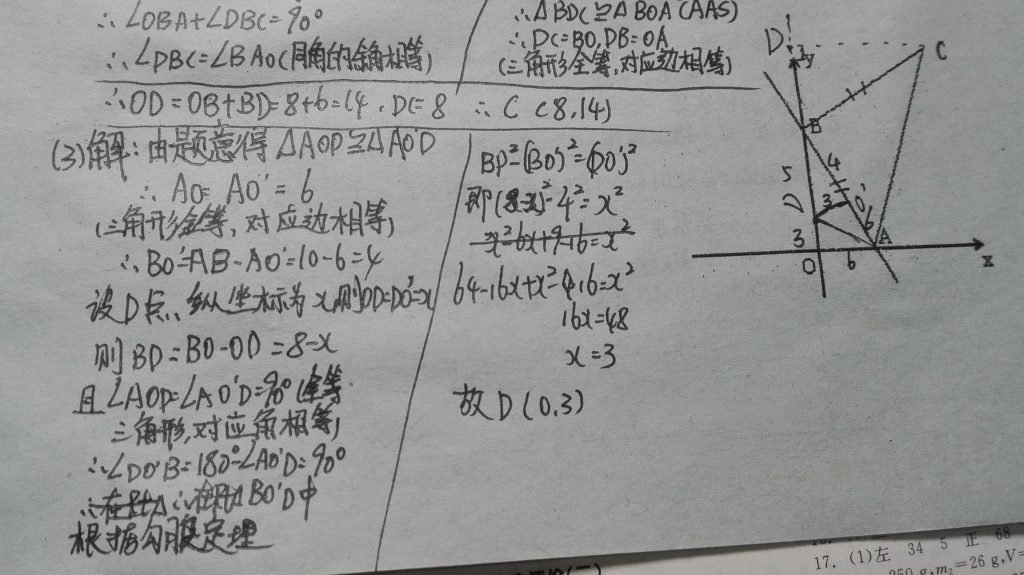 ∴∠OBA+∠DBC=90°
∴∠DBC=∠BAO(同角的余角相等)
∴△BDC≌△BOA(AAS)
∴DC=BO,DB=OA
(三角形全等,对应边相等)
∴OD=OB+BD=8+6=14,DC=8 ∴C(8,14)
(3)解:由题意得△AOD≌△AO'D
∴AO=AO'=6
(三角形全等,对应边相等)
∴BO'=AB-AO'=10-6=4
设D点纵坐标为x,则OD=DO'=x
则BD=BO-OD=8-x
且∠AOD=∠AO'D=90°(全等
三角形,对应角相等)
∴∠DO'B=180°-∠AO'D=90°
∴在Rt△ ∴在Rt△BO'D中
根据勾股定理
BD²-(BO')²=(DO')²
即(8-x)²-4²=x²
x²-6x+9-16=x²
64-16x+x²-16=x²
16x=48
x=3
故D(0,3)
D' y C
B
5 4
D 3 O'
6
3 A
O 6 x
17. (1)左 34 5 正 68
250 g,m₂=26 g,V=